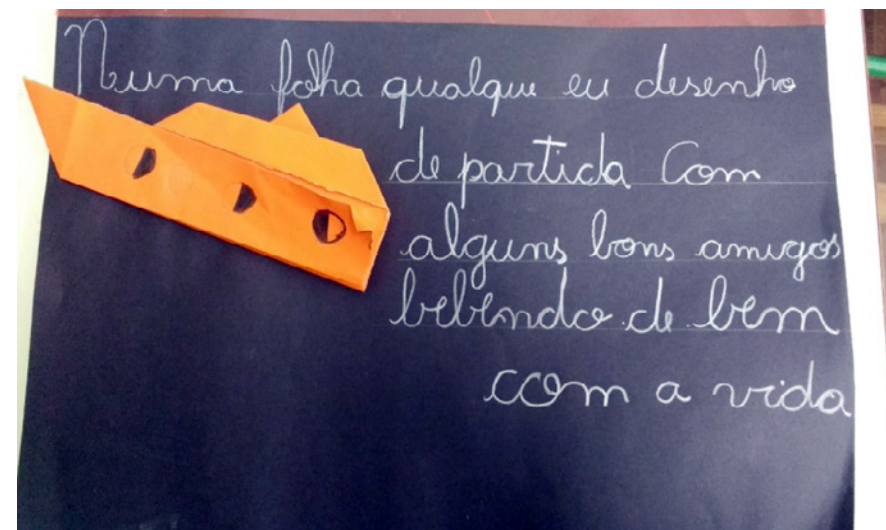 Numa folha qualque eu desenho
de partida Com
alguns bons amigos
bebendo de bem
com a vida